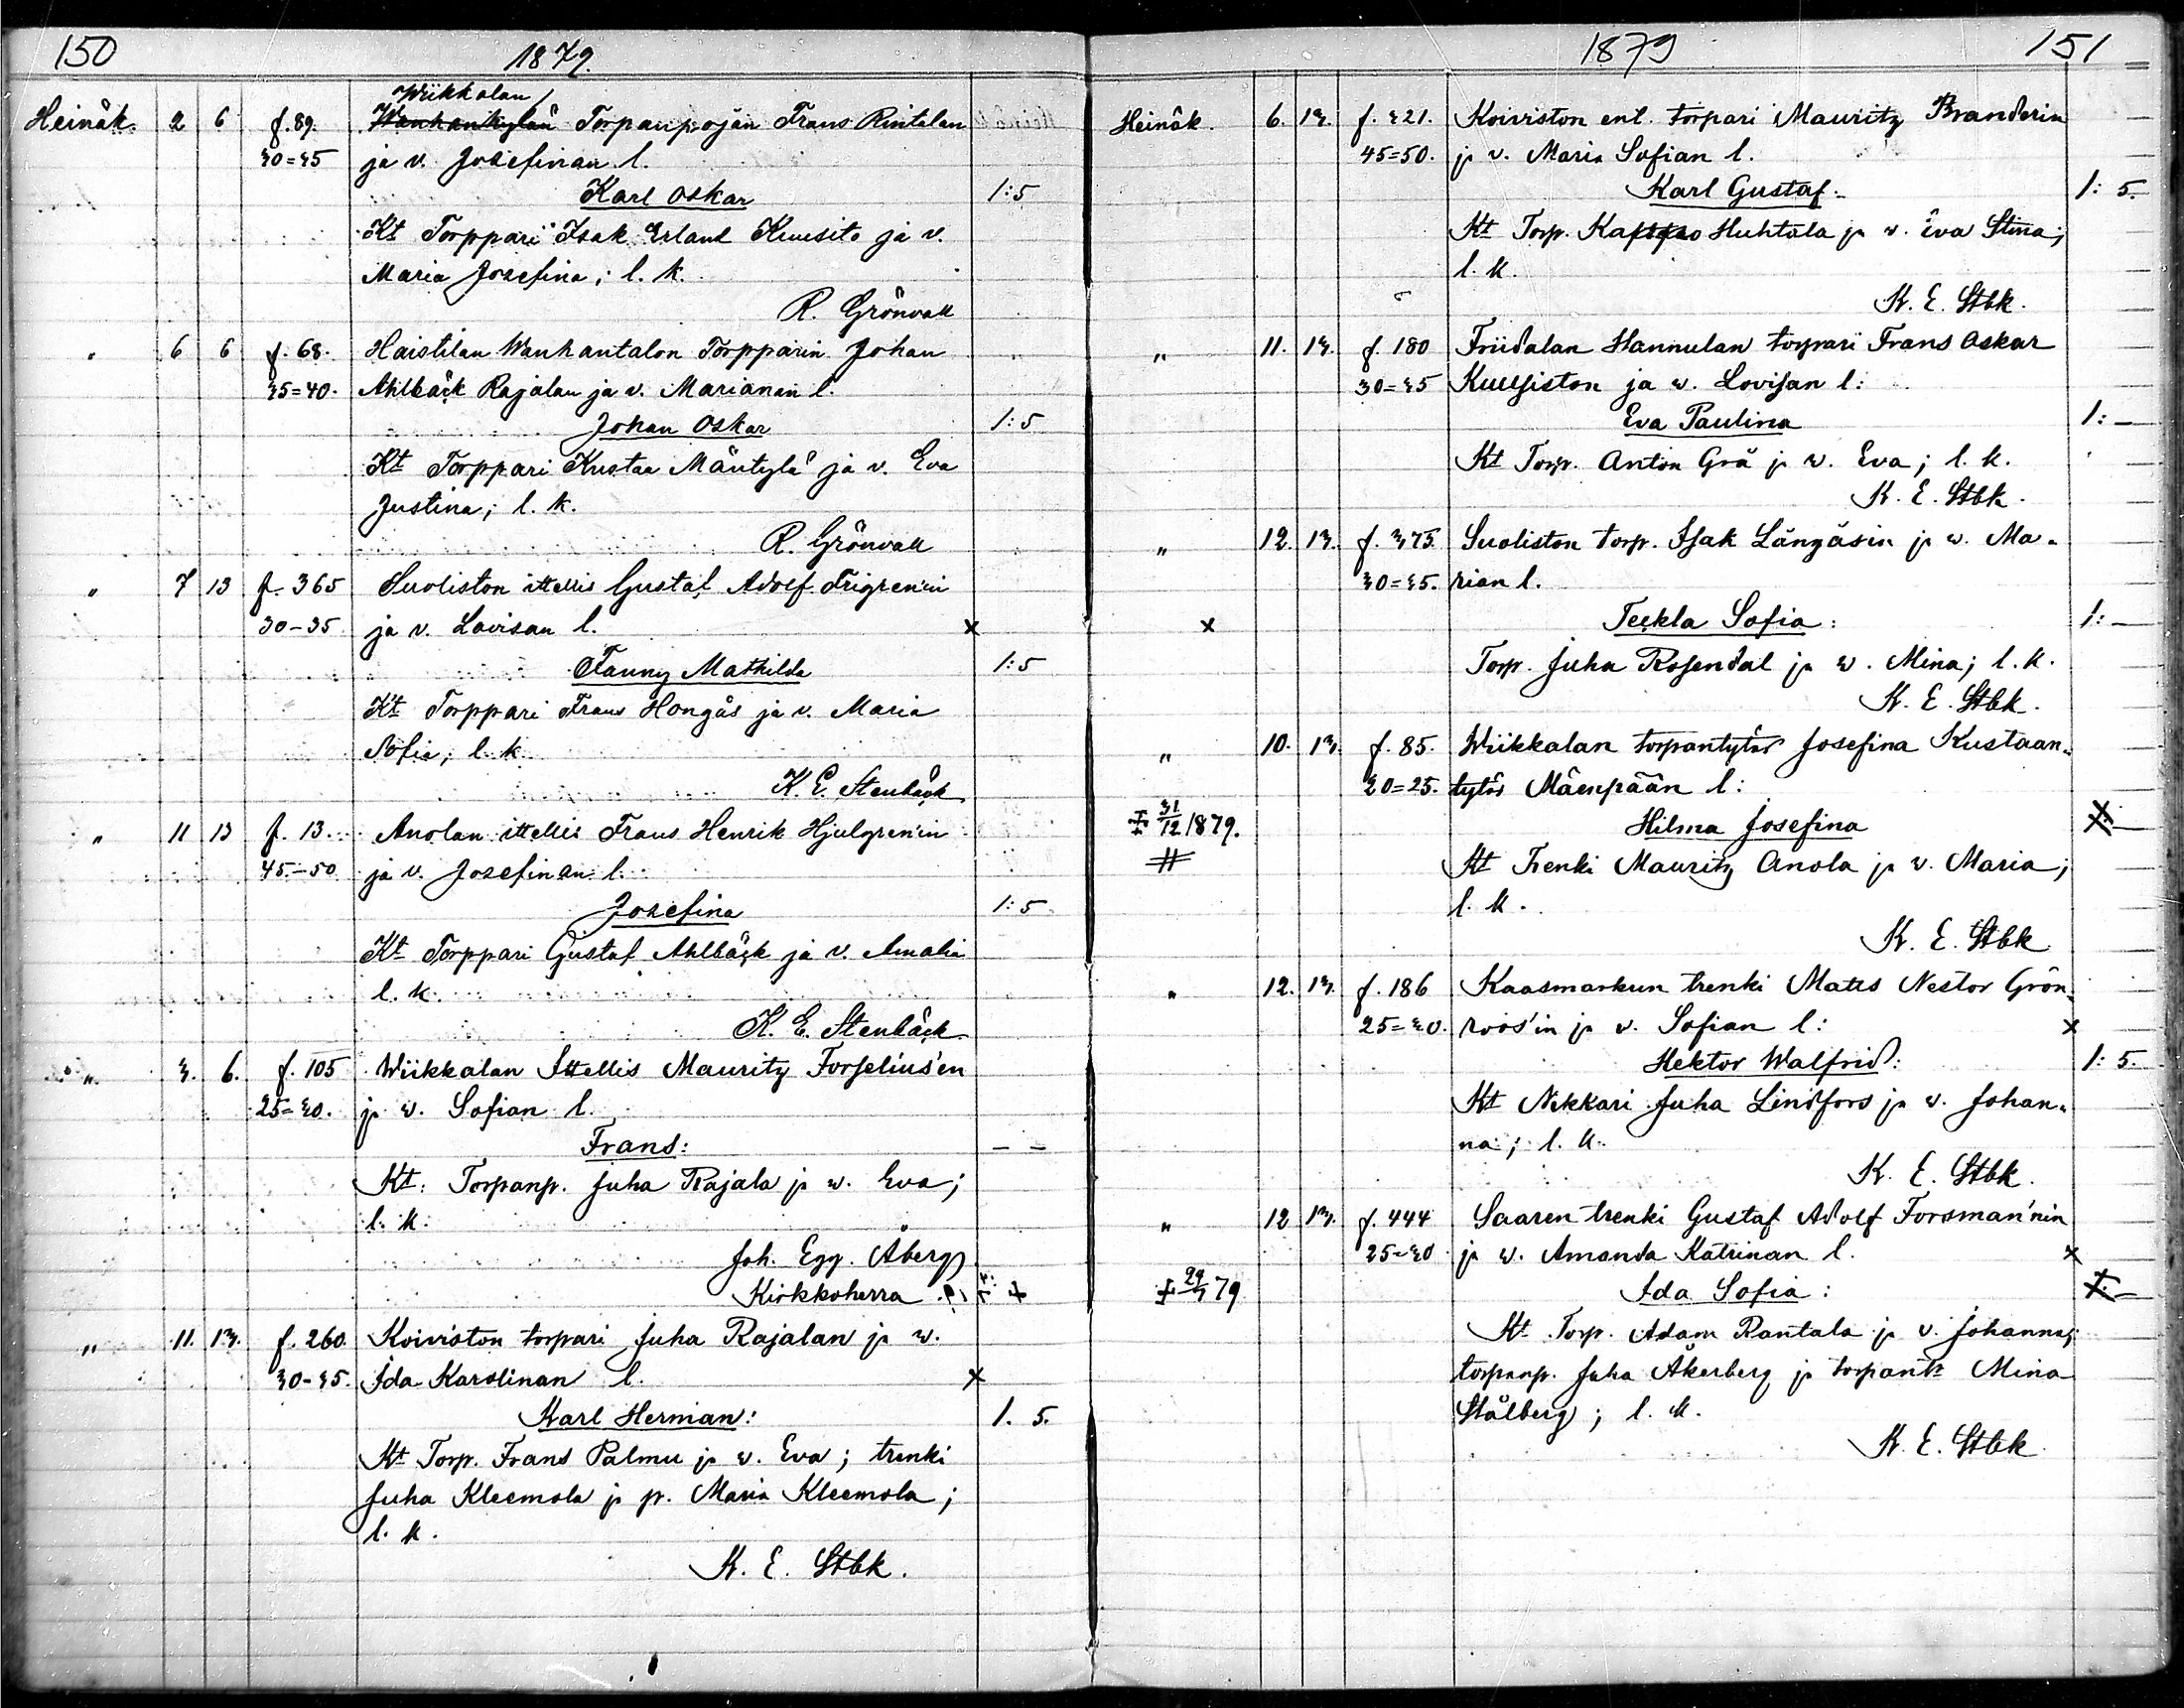 150
1879.
Wiikkalan
Heinäk. 2 6 f. 89. Wanhankylän Torpanpojan Frans Rintalan
30=35 ja v. Josefinan l.
Karl Oskar 1:5
Kt Torppari Isak Erland Kuusito ja v.
Maria Josefina; l. k.
R. Grönvall
" 6 6 f. 68. Haistilan Wanhantalon Torpparin Johan
35=40. Ahlbäck Rajalan ja v. Marianan l.
Johan Oskar 1:5
Kt Torppari Kustaa Mäntylä ja v. Eva
Justina; l. k.
R. Grönvall
" 7 13 f. 365 Suoliston ittellis Gustaf Adolf Frigren'in
30-35 ja v. Lovisan l. x
Fanny Mathilda 1:5
Kt Torppari Frans Hongås ja v. Maria
Sofia; l. k.
K. E. Stenbäck
" 11 13 f. 13. Anolan ittellis Frans Henrik Hjulgren'in
45.-50. ja v. Josefinan l.
Josefina 1:5
Kt Torppari Gustaf Ahlbäck ja v. Amalia
l. k.
K. E. Stenbäck
" 3. 6. f. 105 Wiikkalan Ittellis Mauritz Forselius'en
25=30. ja w. Sofian l.
Frans: - -
Kt: Torpanp. Juha Rajala ja w. Eva;
l. k.
Joh. Egg. Åberg
Kirkkoherra
" 11. 13. f. 260. Koiviston torpari Juha Rajalan ja w.
30-35. Ida Karolinan l. x
Karl Herman: 1. 5.
Kt Torp. Frans Palmu ja w. Eva; trenki
Juha Kleemola ja p. Maria Kleemola;
l. k.
K. E. Stbk.
1879
151
Heinäk. 6. 13. f. 321. Koiviston ent. torpari Mauritz Branderin
45=50. ja v. Maria Sofian l.
Karl Gustaf: 1: 5.
Kt Torp. Huhtala ja w. Eva Stina;
l. k.
K. E. Stbk.
" 11. 13. f. 180 Friidalan Hannulan torpari Frans Oskar
30=35 Kuusiston ja w. Lovisan l:
Eva Paulina 1: -
Kt Torp. Anton Grå ja w. Eva; l. k.
K. E. Stbk.
" 12. 13. f. 375. Suoliston torp. Isak Långåsin ja w. Ma-
30=35. rian l.
x Teckla Sofia: 1: -
Torp. Juha Rosendal ja w. Mina; l. k.
K. E. Stbk.
" 10. 13. f. 85. Wiikkalan torpantytär Josefina Kustaan-
20=25. tytär Mäenpään l:
† 31/12 1879. Hilma Josefina
# Kt Trenki Mauritz Anola ja v. Maria;
l. k.
K. E. Stbk
" 12. 13. f. 186 Kaasmarkun trenki Mats Nestor Grön-
25=30. roos'in ja v. Sofian l: x
Hektor Walfrid: 1: 5.
Kt Nikkari Juha Lindfors ja w. Johan-
na; l. k.
K. E. Stbk.
" 12 13. f. 444 Saaren trenki Gustaf Adolf Forsman'nin
25=30 ja w. Amanda Katrinan l. x
79 Ida Sofia:
Kt Torp. Adam Rantala ja v. Johanna;
torpanp. Juha Åkerberg ja torpantr Mina
Stålberg; l. k.
K. E. Stbk.